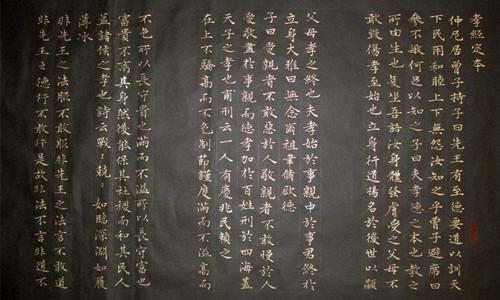 孝經定本
仲尼居曾子持子曰先王有至德要道以訓天
下民用和睦上下無怨汝知之乎曾子避席曰
參不敏何足以知之子曰夫孝德之本也教之
所由生也復坐吾語汝身體發膚受之父母不
敢毀傷孝至始也立身行道揚名於後世以顯
父母孝之終也夫孝始於事親中於事君終於
立身大雅曰無念爾祖聿脩厥德
子曰愛親者不敢惡於人敬親者不敢慢於人
愛敬盡於事親而德孝加於百姓刑於四海蓋
天子之孝也甫刑云一人有慶兆民賴之
在上不驕高而不危制節謹度滿而不溢高而
不危所以長守貴也滿而不溢所以長守富也
富貴不離其身然後能保其社稷而和其民人
蓋諸侯之孝也詩云戰:兢:如臨深淵如履
薄冰
非先王之法服不敢服非先王之法言不敢道
非先王之德行不敢行是故非法不言非道不